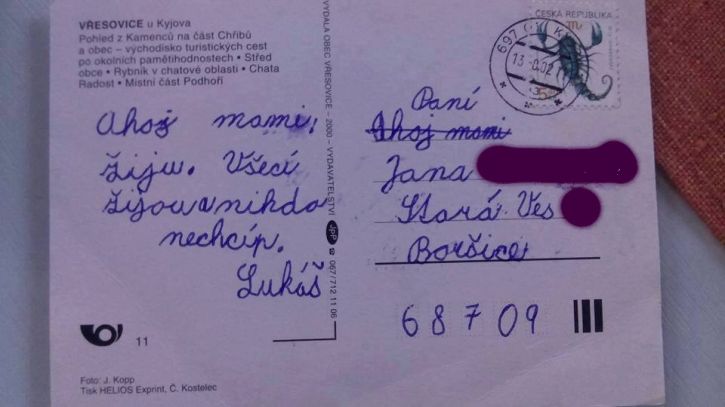 VŘESOVICE u Kyjova
Pohled z Kamenců na část Chřibů
a obec – východisko turistických cest
po okolních pamětihodnostech • Střed
obce • Rybník v chatové oblasti • Chata
Radost • Místní část Podhoří
Ahoj mami,
žiju. Všeci
žijou a nikdo
nechcíp.
Lukáš
11
Foto: J. Kopp
Tisk HELIOS Exprint, Č. Kostelec
VYDALA OBEC VŘESOVICE – 2000 – VYDAVATELSTVÍ JPP ☎ 067/712 11 06
ČESKÁ REPUBLIKA
697 01
Paní
Ahoj mami
Jana
Stará Ves
Boršice
68709